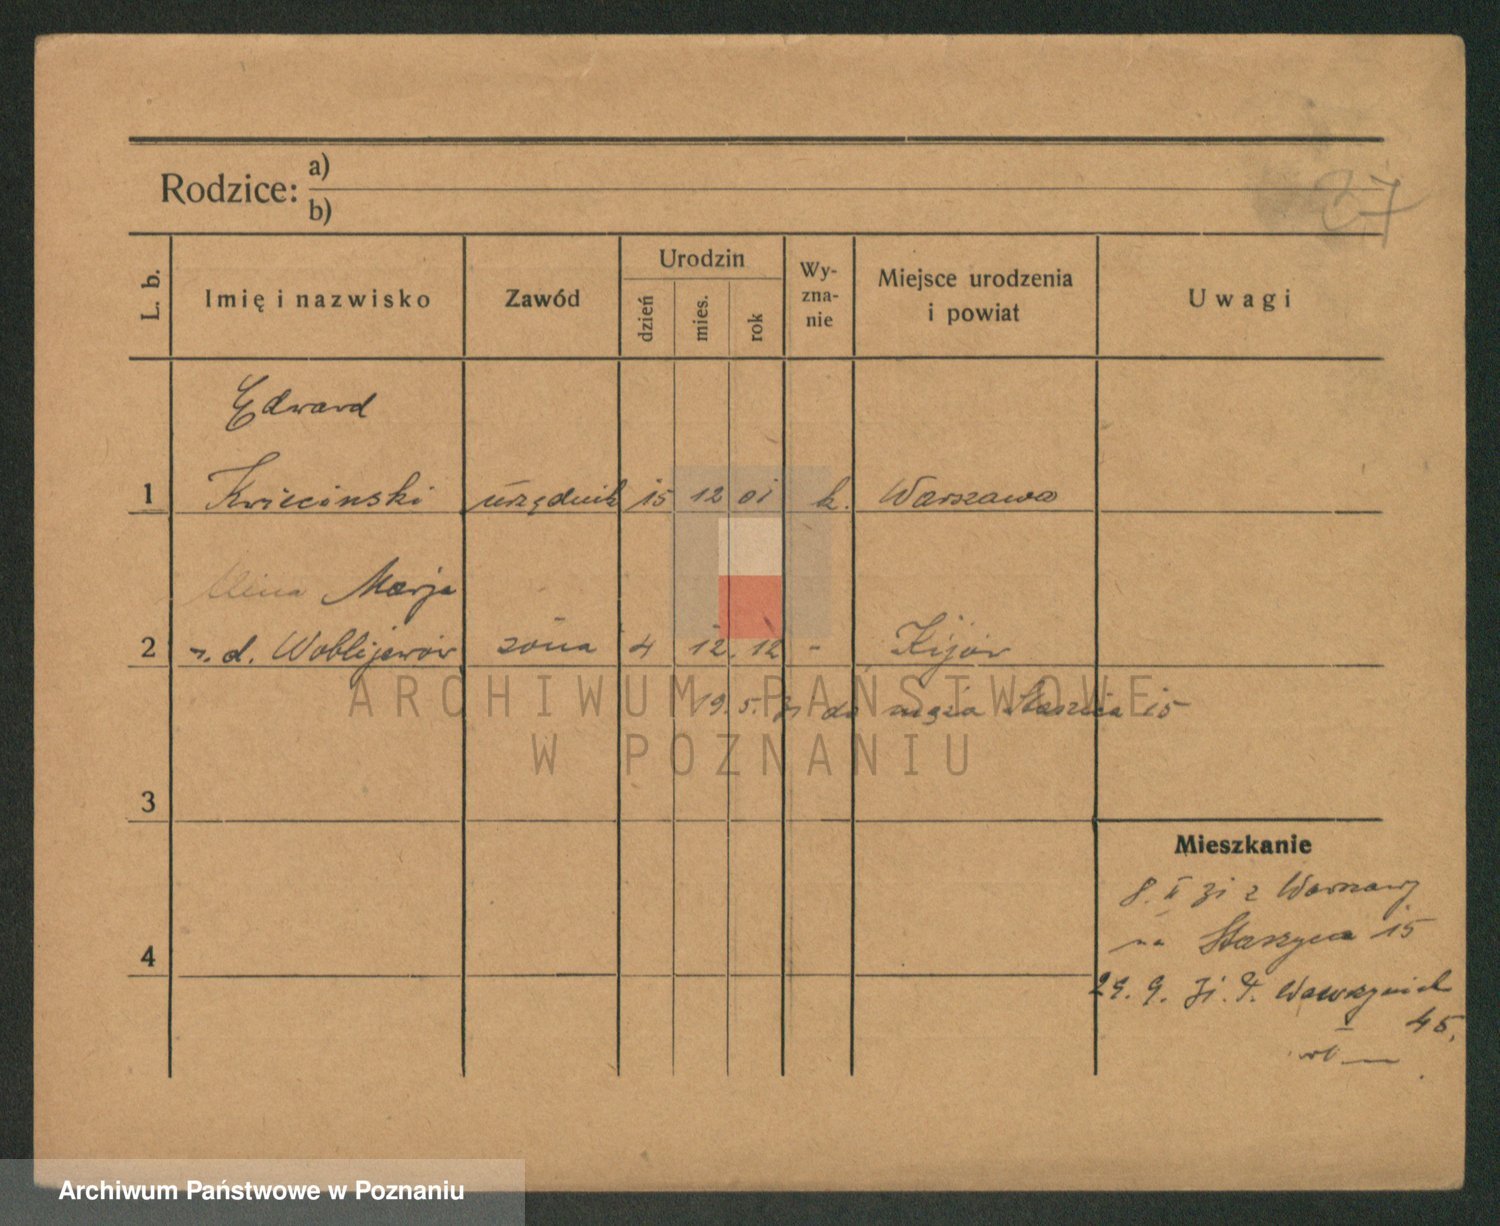 Rodzice: a)
b)
87
L. b.
Imię i nazwisko
Zawód
Urodzin
dzień
mies.
rok
Wy-
zna-
nie
Miejsce urodzenia
i powiat
Uwagi
Edward
1 Kwiecinski urzędnik 15 12 01 k. Warszawa
Marja
2 z. d. żona 4 12. 12 - Kijów
19. 5. 31 do męża Staszica 15
3
Mieszkanie
8. II 31 z Warszawy
na Staszyca 15
4
29. 9. 31. F. Wawrzyniak
45,
ARCHIWUM PAŃSTWOWE
W POZNANIU
Archiwum Państwowe w Poznaniu